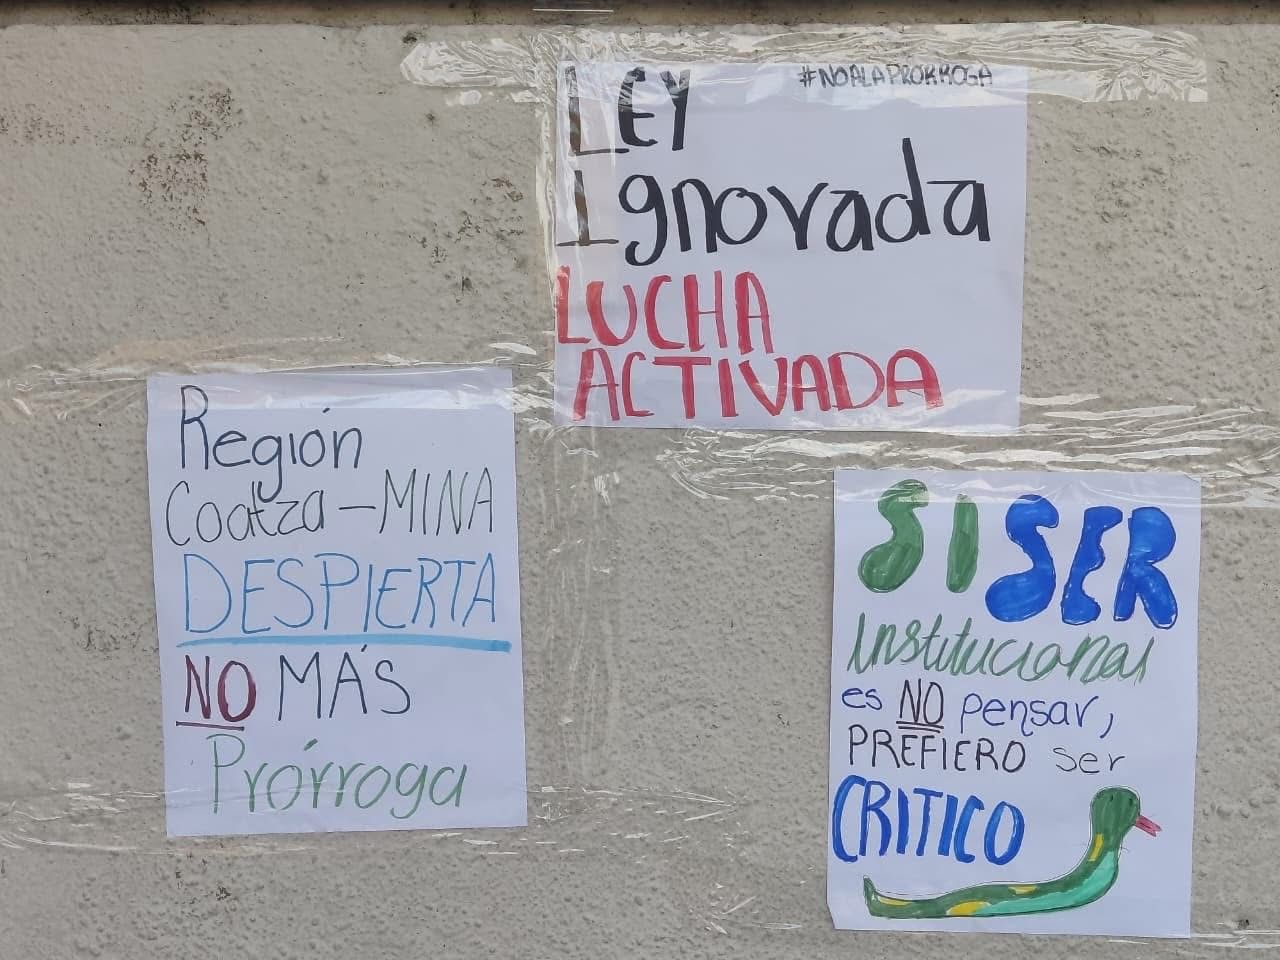 #NOALAPRORROGA
LEY
Ignorada
LUCHA
ACTIVADA
Región
Coatza-MINA
DESPIERTA
NO MÁS
Prórroga
SI SER
Institucional
es NO pensar,
PREFIERO ser
CRITICO